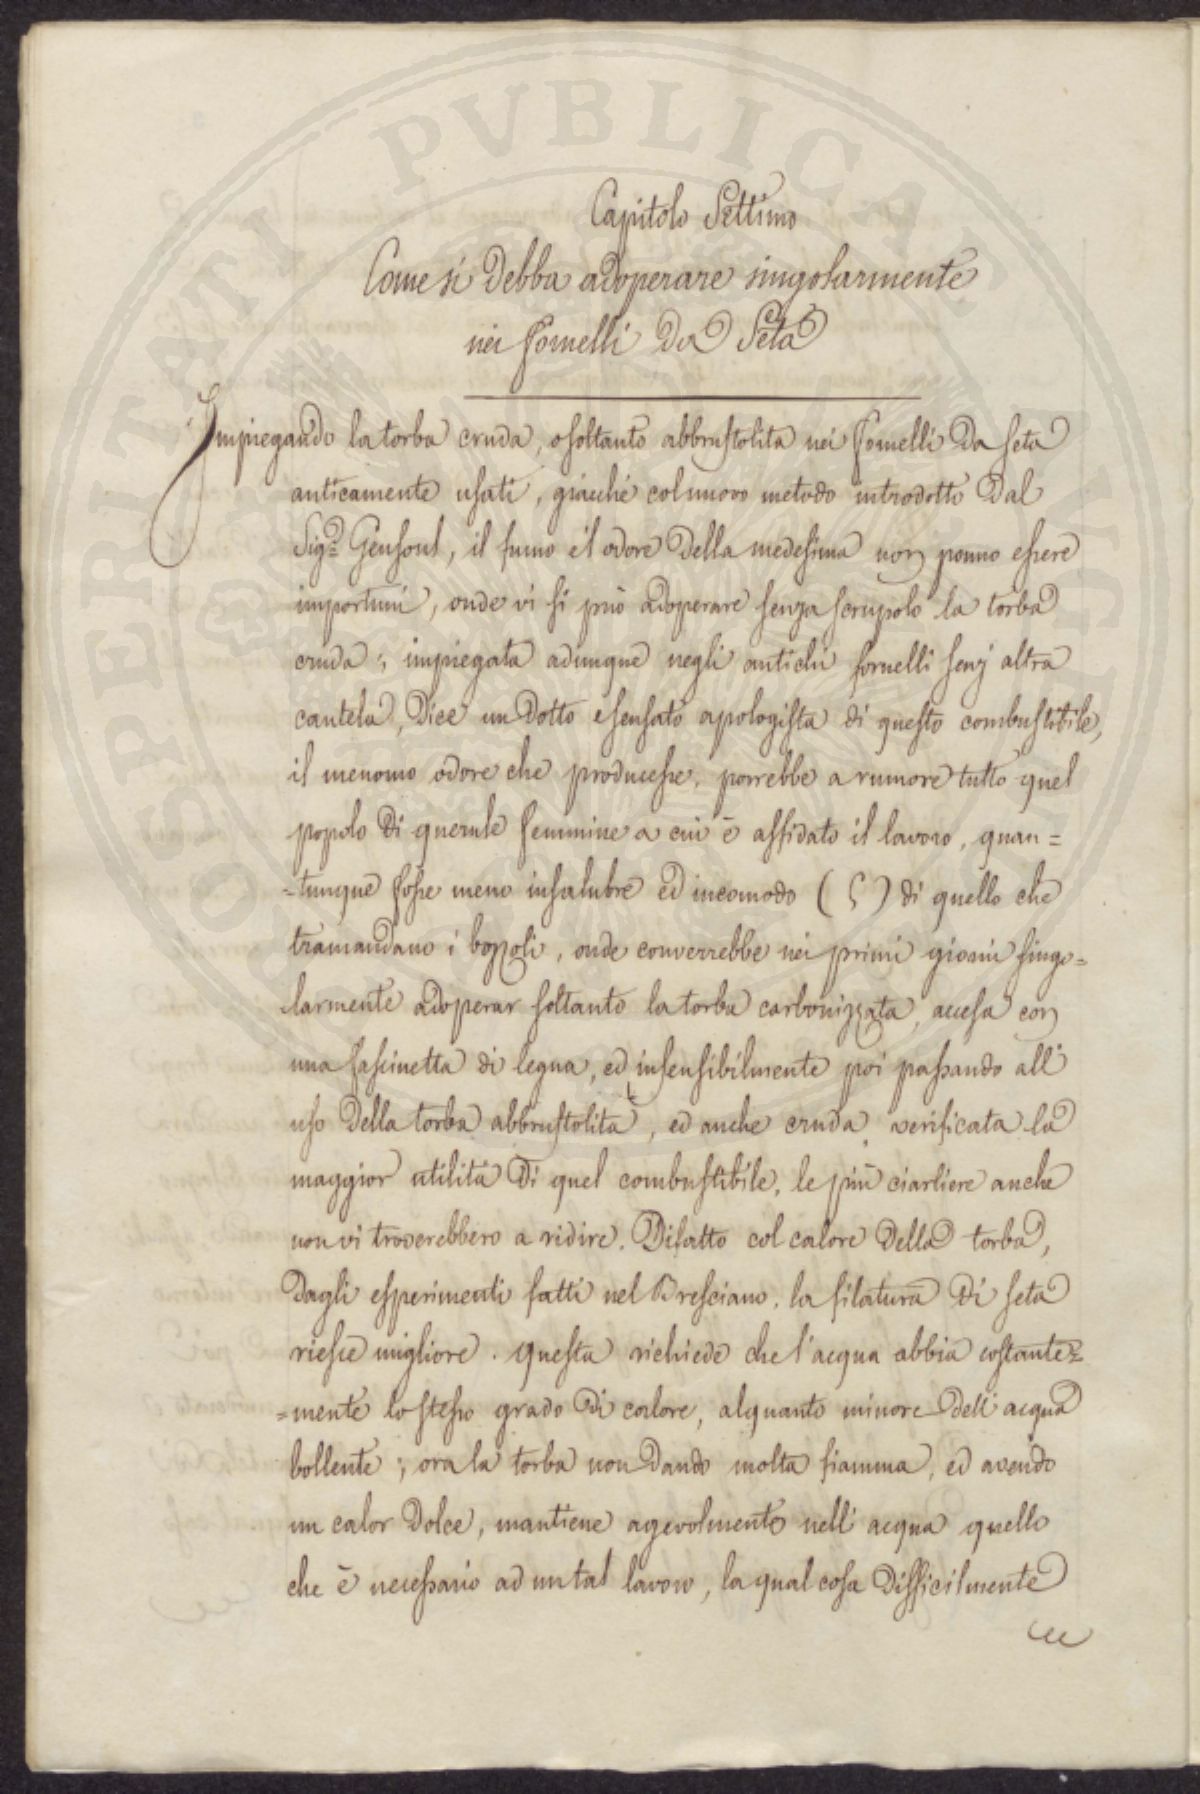 Capitolo Settimo
Come si Debba adoperare singolarmente
nei Fornelli Da Seta
Impiegando la torba cruda, o soltanto abbrustolita nei Fornelli Da seta
anticamente usati, giacchè col nuovo metodo introdotto Dal
Sig.r Gensoul, il fumo e l'odore Della medesima non ponno essere
importuni, onde vi si può adoperare senza scrupolo la torba
cruda; impiegata adunque negli antichi fornelli senz'altra
cautela, Dice un Dotto e sensato apologista di questo combustibile,
il menomo odore che producesse, porrebbe a rumore tutto quel
popolo Di querule femmine a cui è affidato il lavoro, quan=
=tunque fosse meno insalubre ed incomodo (ς) di quello che
tramandano i bozzoli, onde converrebbe nei primi giorni singo=
larmente adoperar soltanto la torba carbonizzata, accesa con
una fascinetta di legna, ed insensibilmente poi passando all'
uso Della torba abbrustolita, ed anche cruda, verificata la
maggior utilità Di quel combustibile, le più ciarliere anche
non vi troverebbero a ridire. Difatto col calore Della torba,
Dagli esperimenti fatti nel Bresciano, la filatura Di seta
riesce migliore. Questa richiede che l'acqua abbia costante=
=mente lo stesso grado Di calore, alquanto minore Dell'acqua
bollente; ora la torba non Dando molta fiamma, ed avendo
un calor Dolce, mantiene agevolmente nell'acqua quello
che è necessario ad un tal lavoro, la qual cosa Difficilmente